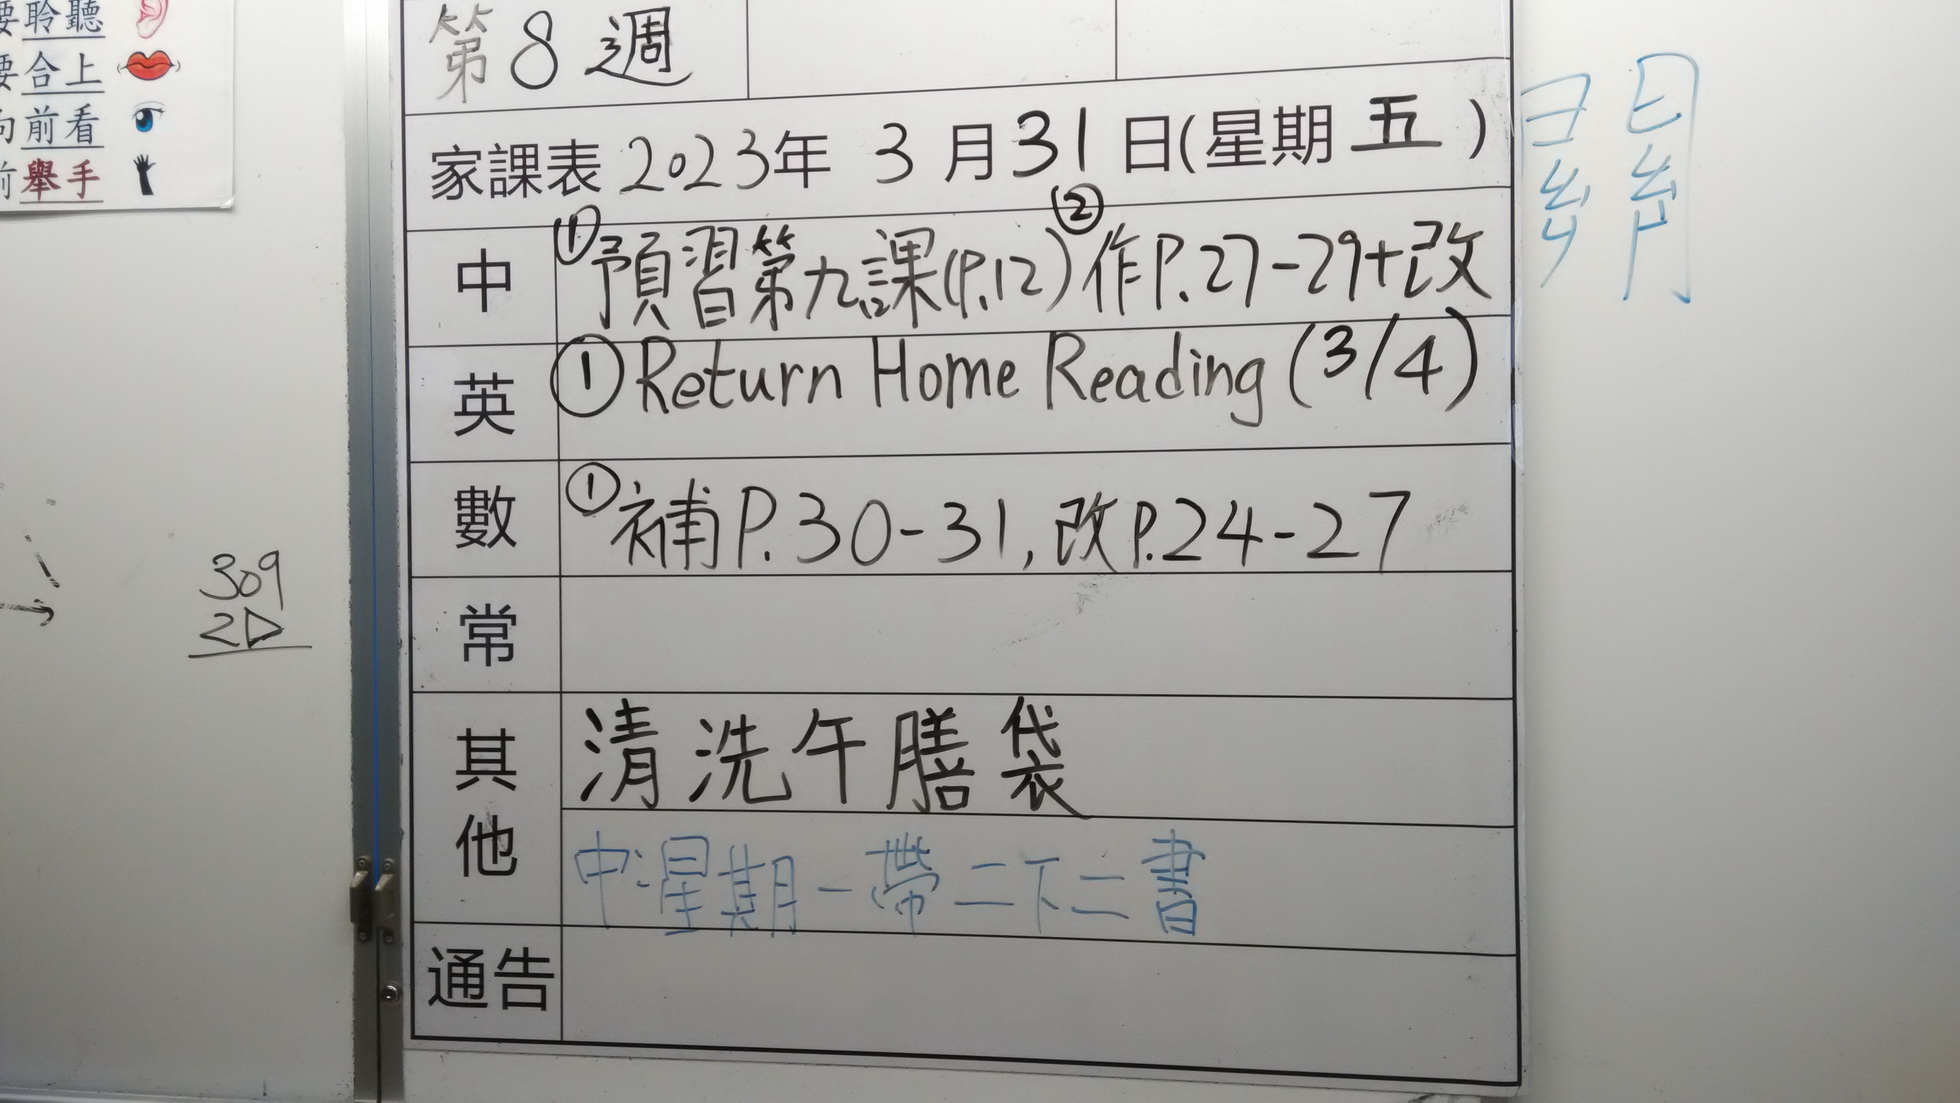 要聆聽
要合上
向前看
前舉手
309
第8週
家課表 2023年 3月31日(星期五)
中 ①預習第九課(P.12) ②作P.27-29+改
英 ①Return Home Reading (3/4)
數 ①補P.30-31,改P.24-27
常
其他 清洗午膳袋
中:星期一帶二下二書
通告